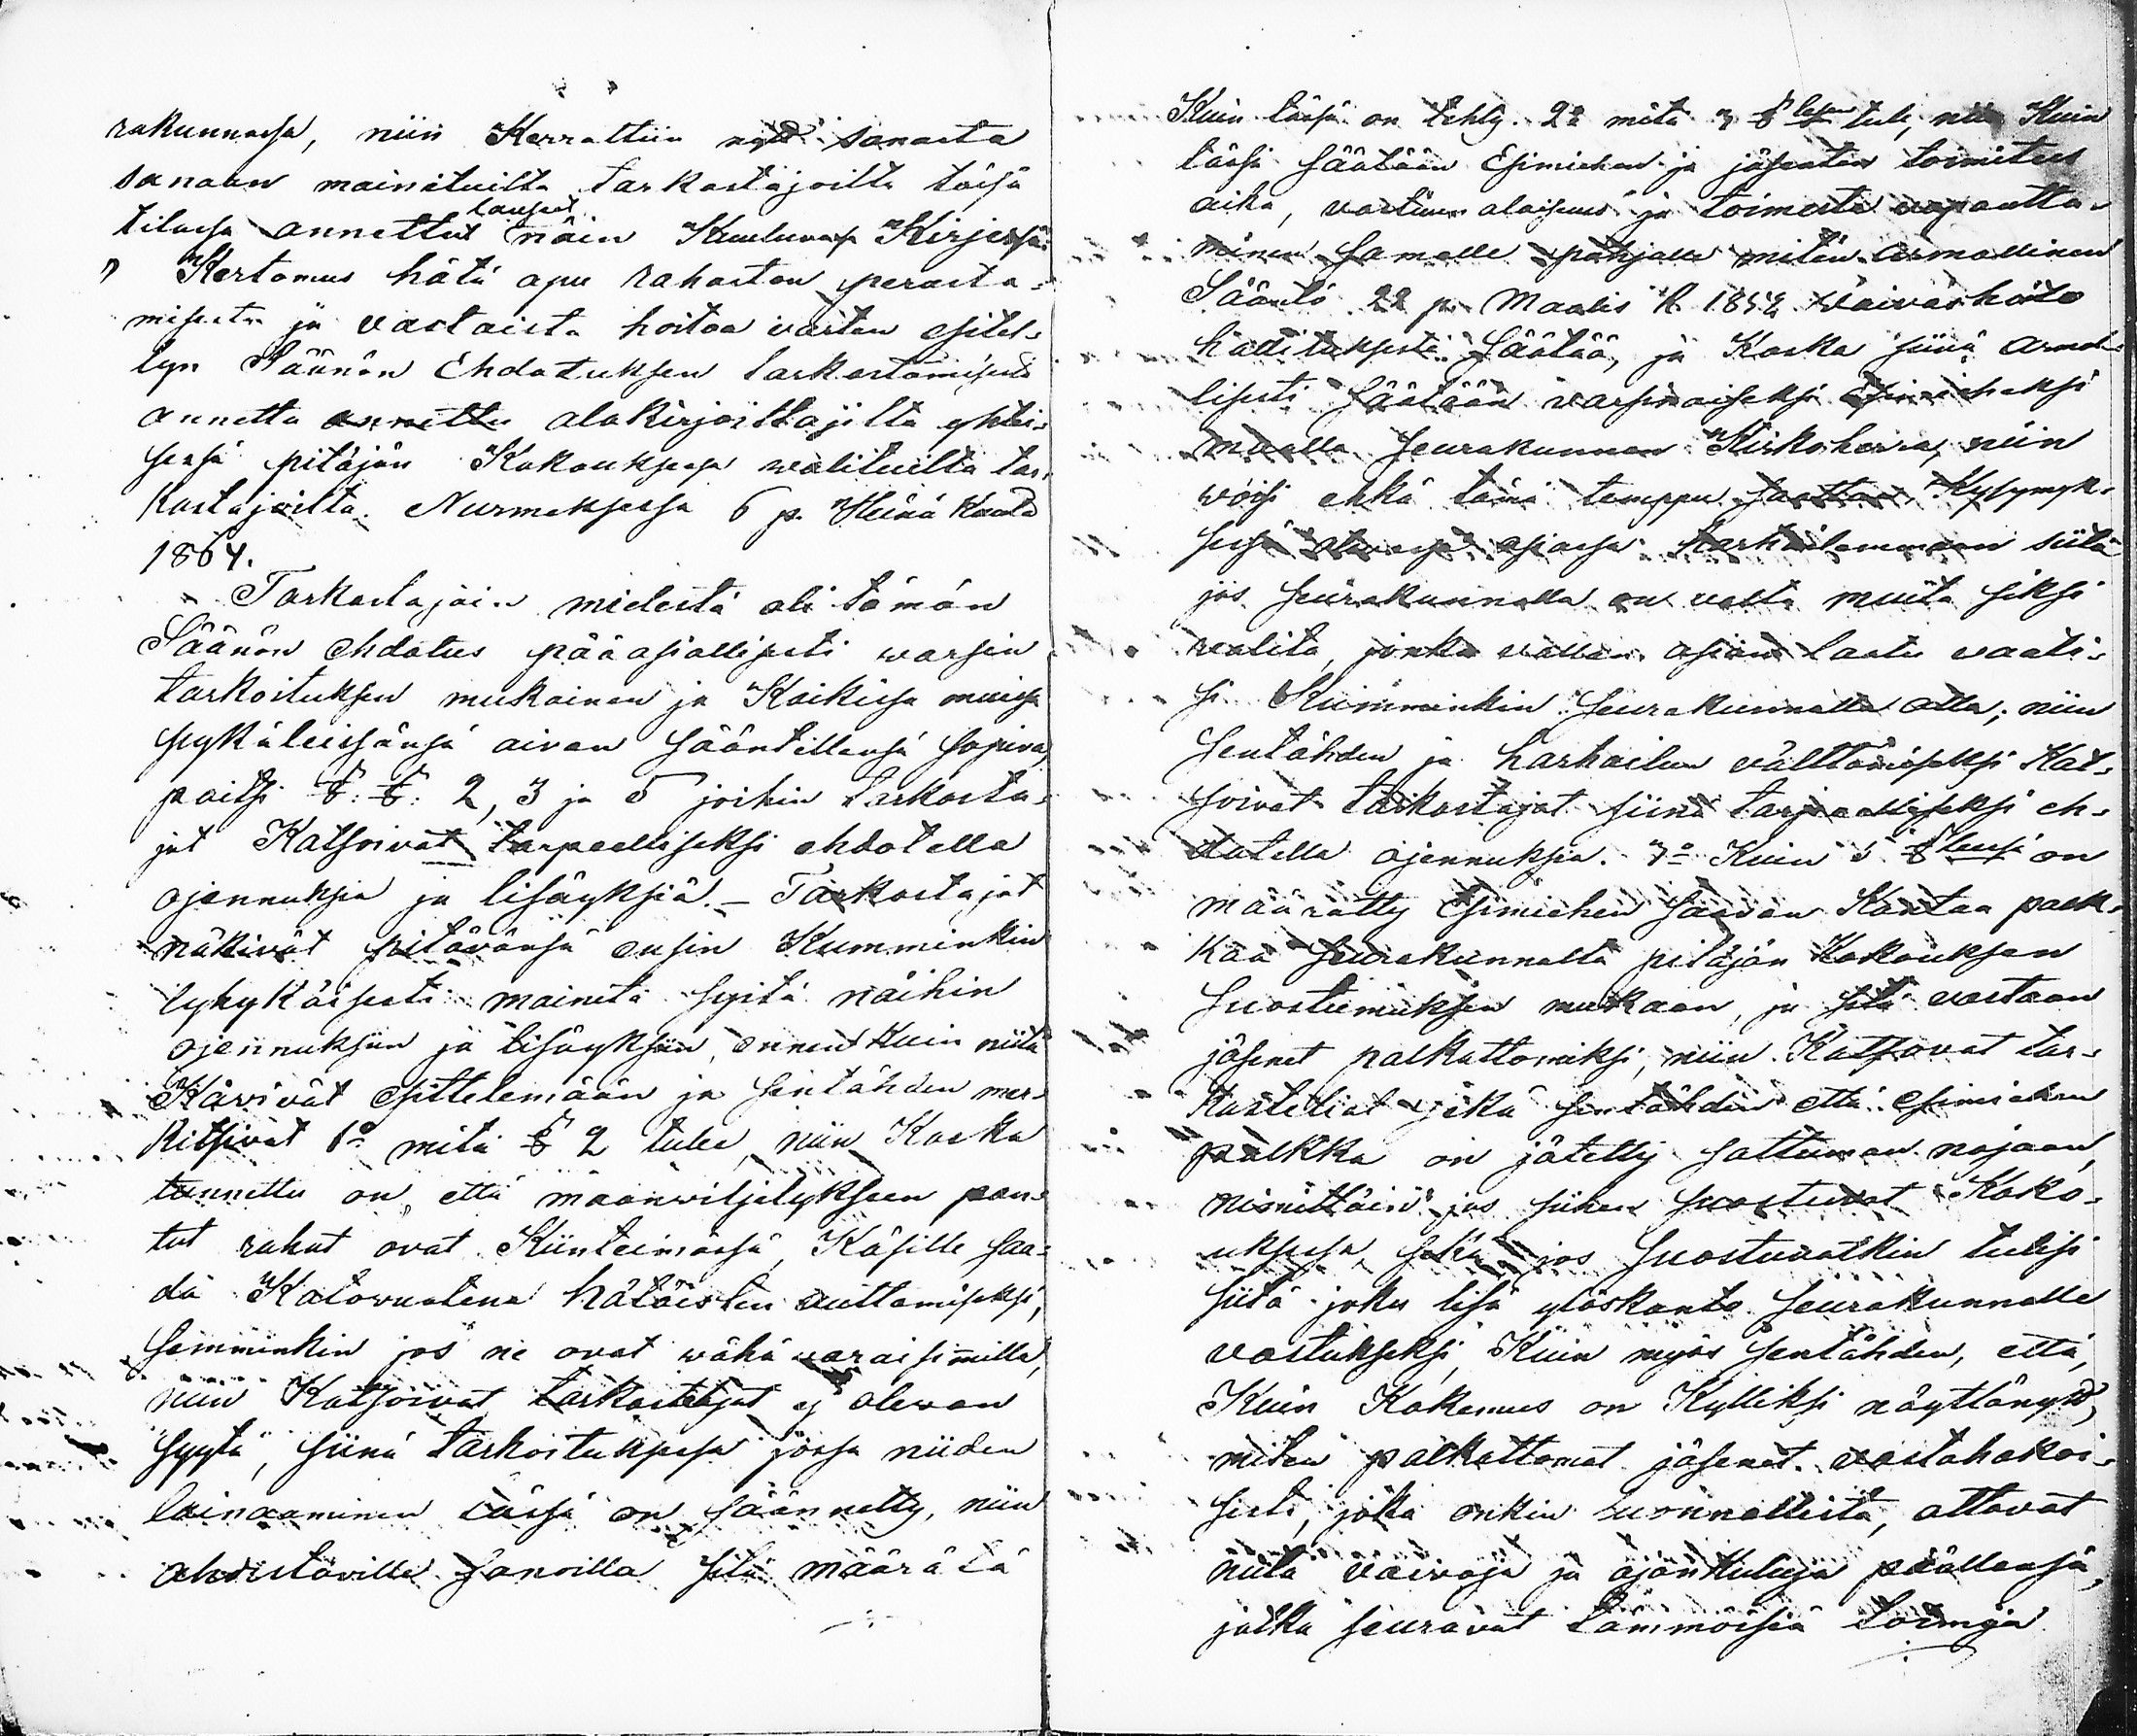 rakunnassa, niin Kerrattiin nyt sanasta
sanaan mainituilta tarkastajoilta tässä
tilassa annettut lauseet näin Kuuluvassa Kirjeessä
" Kertomus hätä apu rahaston perusta-
misesta ja vastaista hoitoa varten esitel-
lyn Säänön Ehdotuksen tarkastamisesta
annettu annettu alakirjoittajilta yhtei-
sessä pitäjän Kokouksessa walituilta tar-
kastajoilta. Nurmeksessa 6 p. Heinä Kuuta
1864.
Tarkastajain mielestä oli tämän
Säänön ehdotus pääasiallisesti warsin
tarkoituksen mukainen ja Kaikissa muissa
pykäleissänsä aivan sääntillensä sopiva,
paitsi §. §. 2, 3 ja 5 joihin tarkasta-
jat Katsoivat tarpeelliseksi ehdotella
ojennuksia ja lisäyksiä. – Tarkastajat
näkivät pitävänsä ensin Kumminkin
lyhykäisesti mainita syitä näihin
ojennuksiin ja lisäyksiin, ennen Kuin niitä
Kävivät esittelemään ja sentähden mer-
kitsivät 1o mitä § 2 tulee, niin Koska
tunnettu on, että maanwiljelykseen pan-
tut rahat ovat Kiinteimässä, Käsille saa-
da Katovuotena hätäisten auttamiseksi,
semminkin jos ne ovat wähä varaisimmilla,
niin Katsoivat tarkastelijat ej olewan
syytä, siinä tarkoituksessa jossa niiden
lainaaminen tässä on säännetty, niin
ahdistavilla sanoilla sitä määrätä
Kuin tässä on tehty. 2o mitä 3 § tulee, niin Kuin
tässä säätään Esimiehen ja jäsenten toimitus
aika, vastuun alaisuus ja toimesta vapautta-
minen samalle pohjalle miten Armollinen
Sääntö 22 p. Maalis K. 1852 Waivashoito
hallituksesta säätää, ja Koska siinä armol-
lisesti säätään varsinaiseksi esimieheksi
maalla seurakunnan Kirkkoherra, niin
wöisi ehkä tämä temppu saattaa Kysymyk-
sessä olevassa asiassa harhailemmaan siitä
jos seurakunnalla on valta muita siksi
valita, jonka vallan asian laatu vaati-
si Kumminkin seurakunnalla olla; niin
sentähden ja harhailun välttämiseksi Kat-
soivat tarkastajat siinä tarpeelliseksi eh-
dotella ojennuksia. 3o Kuin 5 § on
määrätty esimiehen saavan Kantaa palk-
kaa seurakunnalta pitäjän Kokouksen
suostumuksen mukaan, ja sitä vastaan
jäsenet palkattomiksi, niin Katsovat tar-
kastelijat sekä sentähden että esimiehen
palkka on jätetty sattuman nojaan,
nimittäin jos siihen suostuvat Koko-
uksessa, sekä jos suostuvatkin tulisi
siitä joku lisä ylöskanto seurakunnalle
vastukseksi, Kuin myös sentähden, että,
Kuin Kokemus on Kylliksi näyttänyt,
miten palkattomat jäsenet vastahakoi-
sesti, joka onkin luonnollista, ottavat
niitä vaivoja ja ajankuluja päällensä,
jotka seuravat tämmöisiä toimia